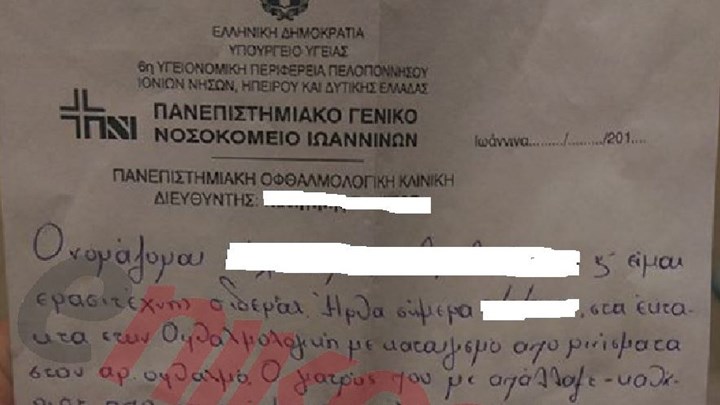 ΕΛΛΗΝΙΚΗ ΔΗΜΟΚΡΑΤΙΑ
ΥΠΟΥΡΓΕΙΟ ΥΓΕΙΑΣ
6η ΥΓΕΙΟΝΟΜΙΚΗ ΠΕΡΙΦΕΡΕΙΑ ΠΕΛΟΠΟΝΝΗΣΟΥ
ΙΟΝΙΩΝ ΝΗΣΩΝ, ΗΠΕΙΡΟΥ ΚΑΙ ΔΥΤΙΚΗΣ ΕΛΛΑΔΑΣ
ΠΑΝΕΠΙΣΤΗΜΙΑΚΟ ΓΕΝΙΚΟ
ΝΟΣΟΚΟΜΕΙΟ ΙΩΑΝΝΙΝΩΝ
Ιωάννινα........./........./201....
ΠΑΝΕΠΙΣΤΗΜΙΑΚΗ ΟΦΘΑΛΜΟΛΟΓΙΚΗ ΚΛΙΝΙΚΗ
ΔΙΕΥΘΥΝΤΗΣ:
Ονομάζομαι ξ' είμαι
ερασιτέχνης σιδεράς. Ήρθα σήμερα , στα έκτα-
κτα στην Οφθαλμολογική με καταιγισμό από ρινίσματα
στον αρ. οφθαλμό. Ο γιατρός που με απάλλαξε - καθ-